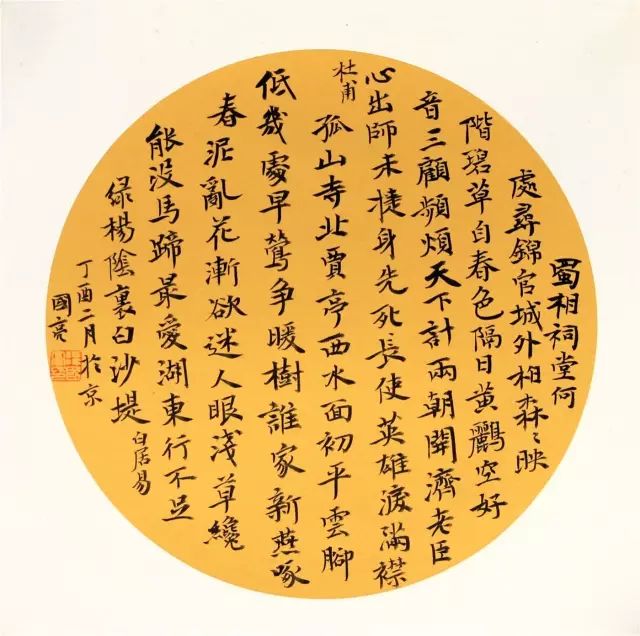 蜀相祠堂何
處尋錦官城外相森〻映
階碧草自春色隔日黃鸝空好
音三顧頻煩天下計兩朝開濟老臣
心出師未捷身先死長使英雄淚滿襟
杜甫
孤山寺北賈亭西水面初平雲腳
低幾處早鶯爭暖樹誰家新燕啄
春泥亂花漸欲迷人眼淺草纔
能沒馬蹄最愛湖東行不足
綠楊陰裏白沙堤
白居易
丁酉二月於京
國亮